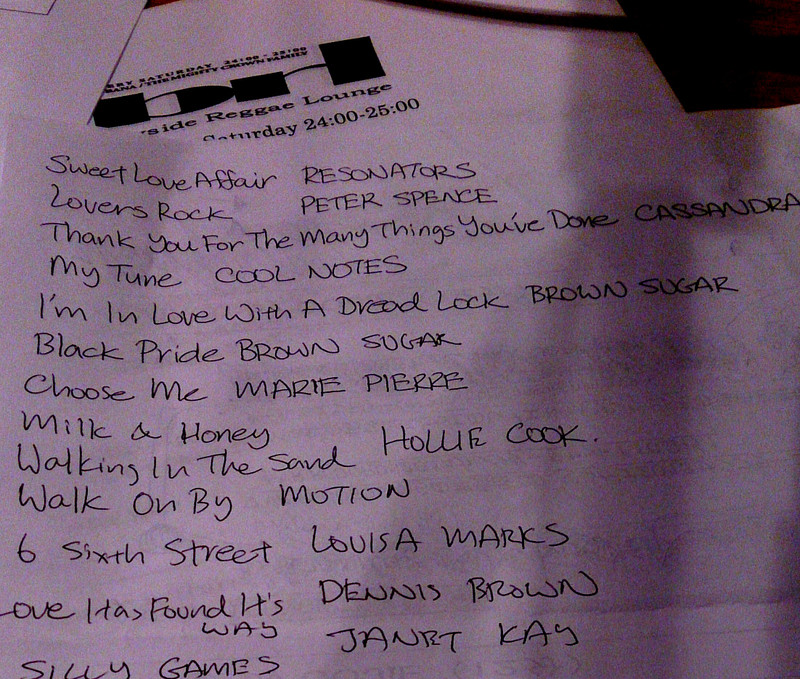 SATURDAY 24:00 - 25:00
/THE MIGHTY CROWN FAMILY
side Reggae Lounge
Saturday 24:00-25:00
Sweet Love Affair RESONATORS
Lovers Rock PETER SPENCE
Thank You For The Many Things You've Done CASSANDRA
My Tune COOL NOTES
I'm In Love With A Dread Lock BROWN SUGAR
Black Pride BROWN SUGAR
Choose Me MARIE PIERRE
Milk & Honey HOLLIE COOK.
Walking In The Sand
Walk On By MOTION
6 Sixth Street LOUISA MARKS
Love Has Found It's DENNIS BROWN
WAY
SILLY GAMES JANET KAY